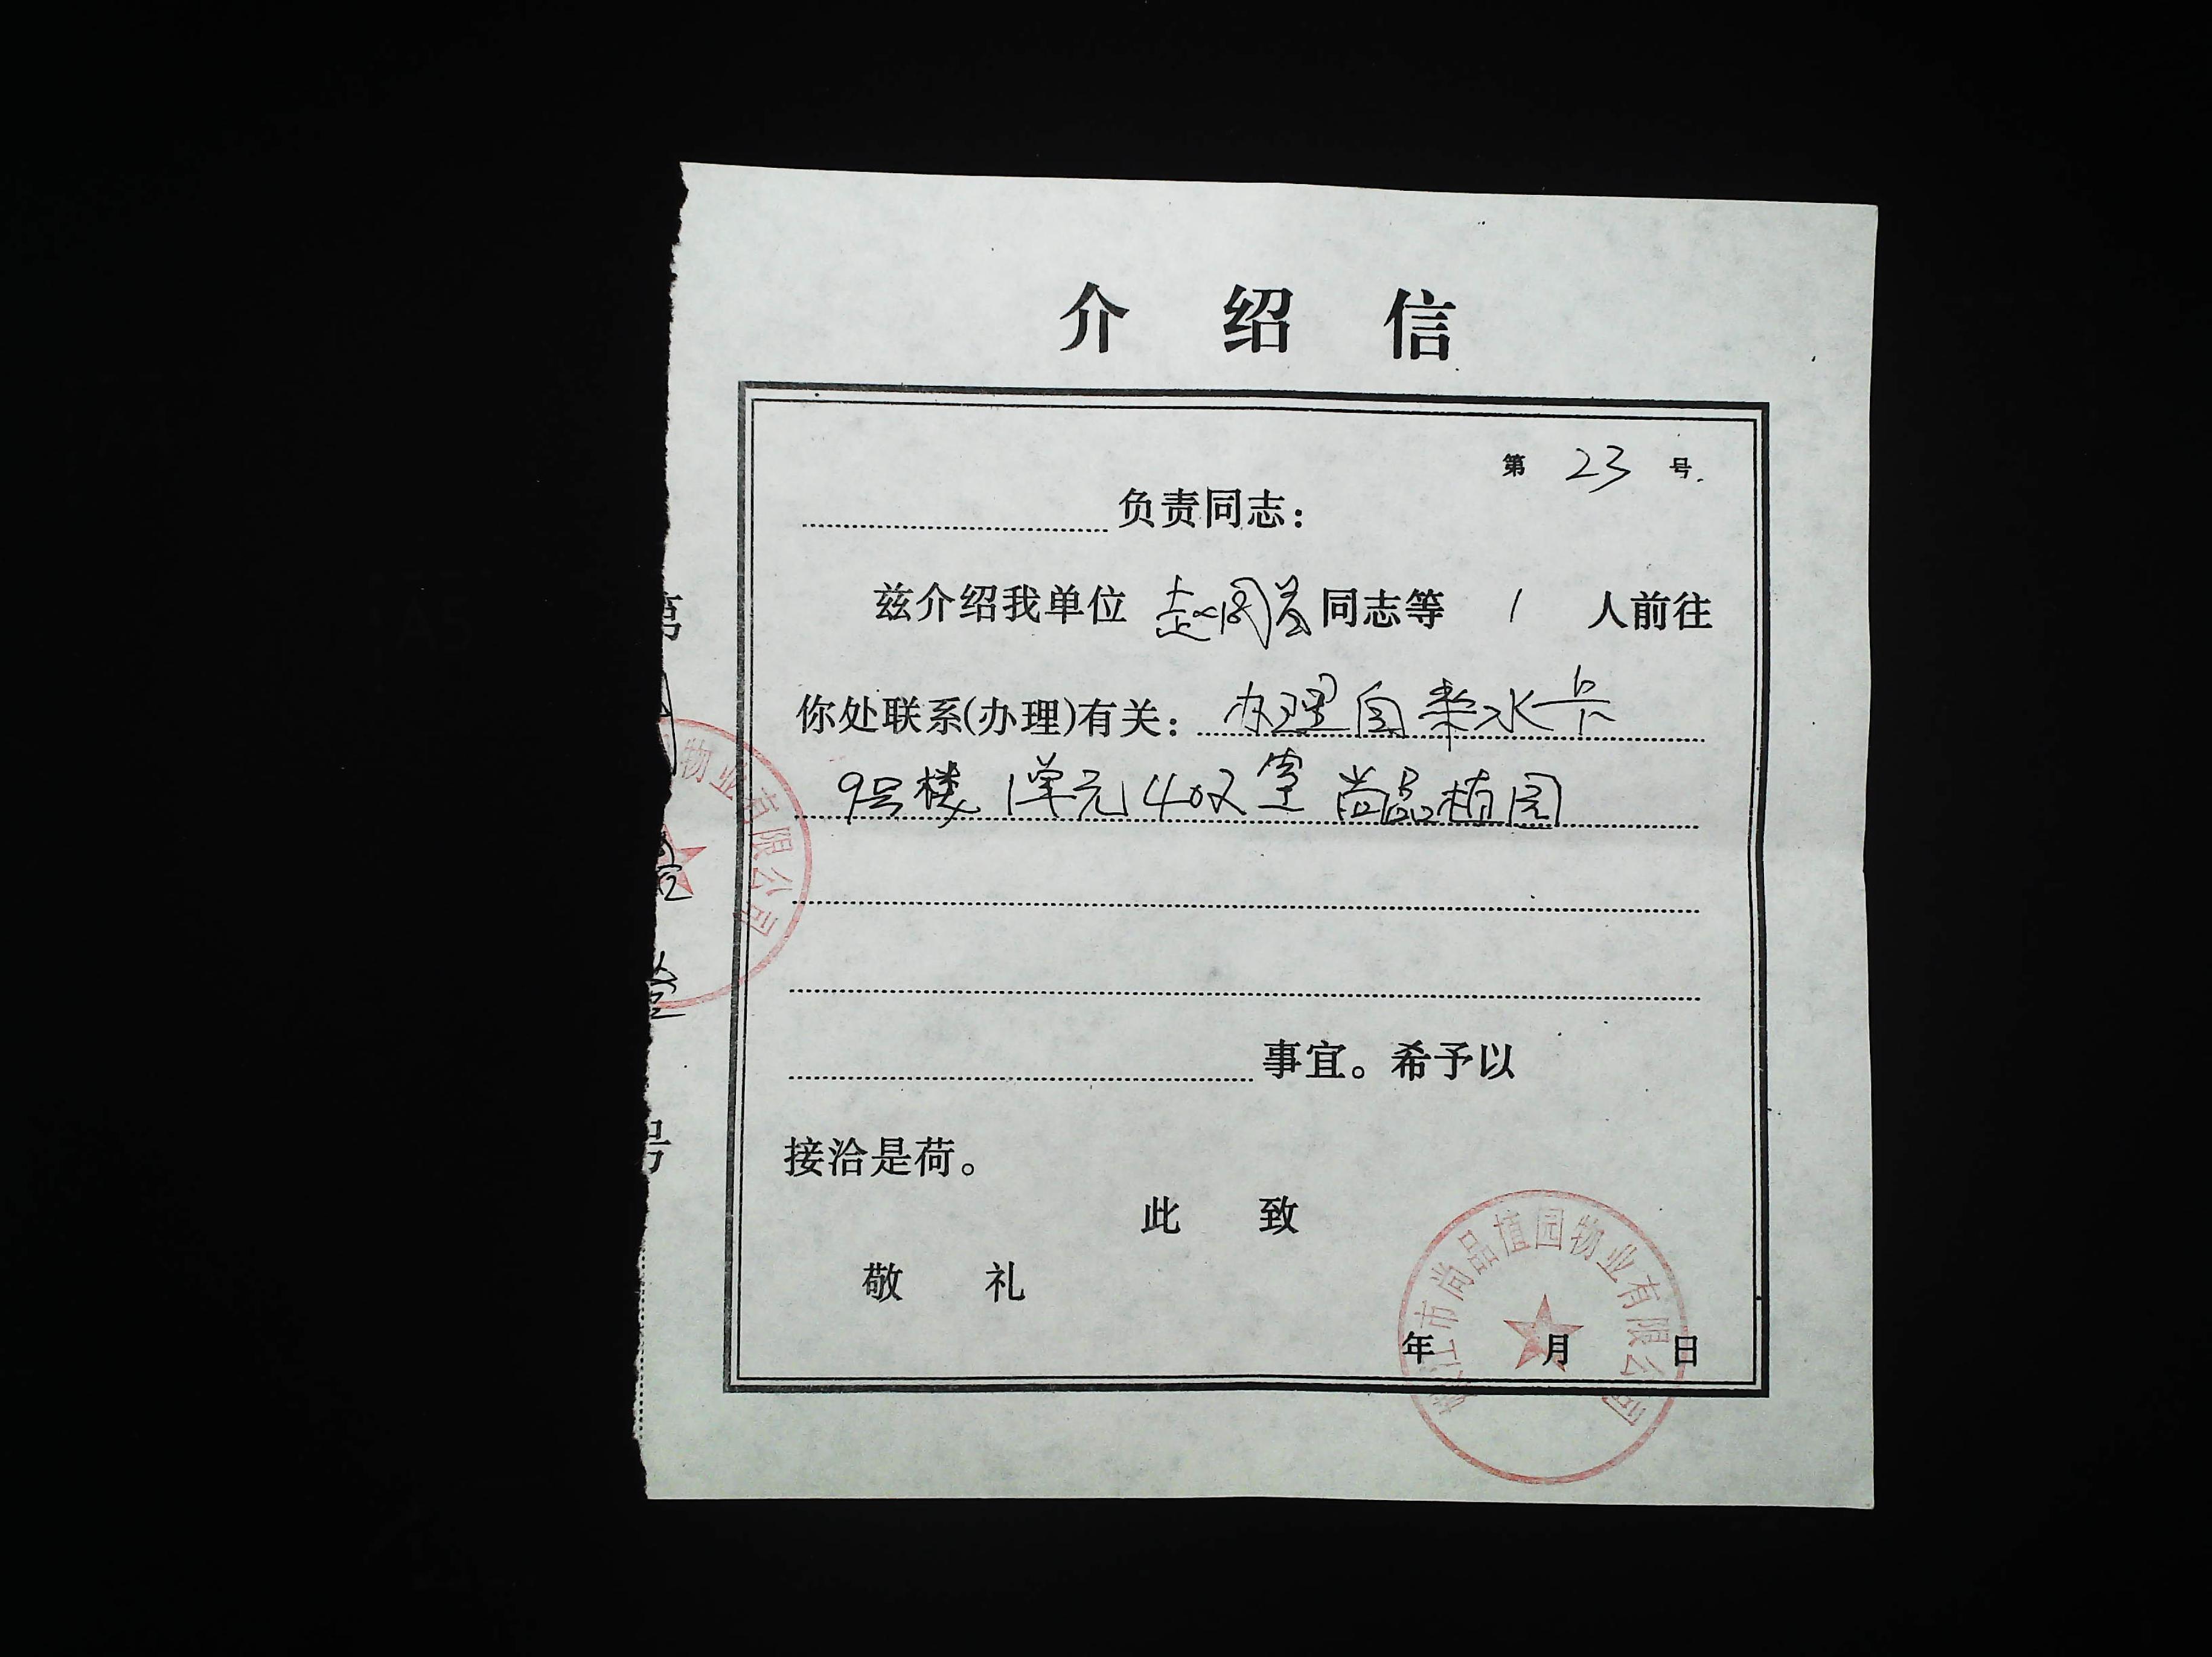 介绍信
第 23 号
负责同志：
兹介绍我单位 赵 同志等 1 人前往
你处联系(办理)有关：办理自来水卡
9号楼 1单元 402室 尚品植园
事宜。希予以
接洽是荷。
此 致
敬 礼
年 月 日
江市尚品植园物业有限公司
第
物业有限公司
号